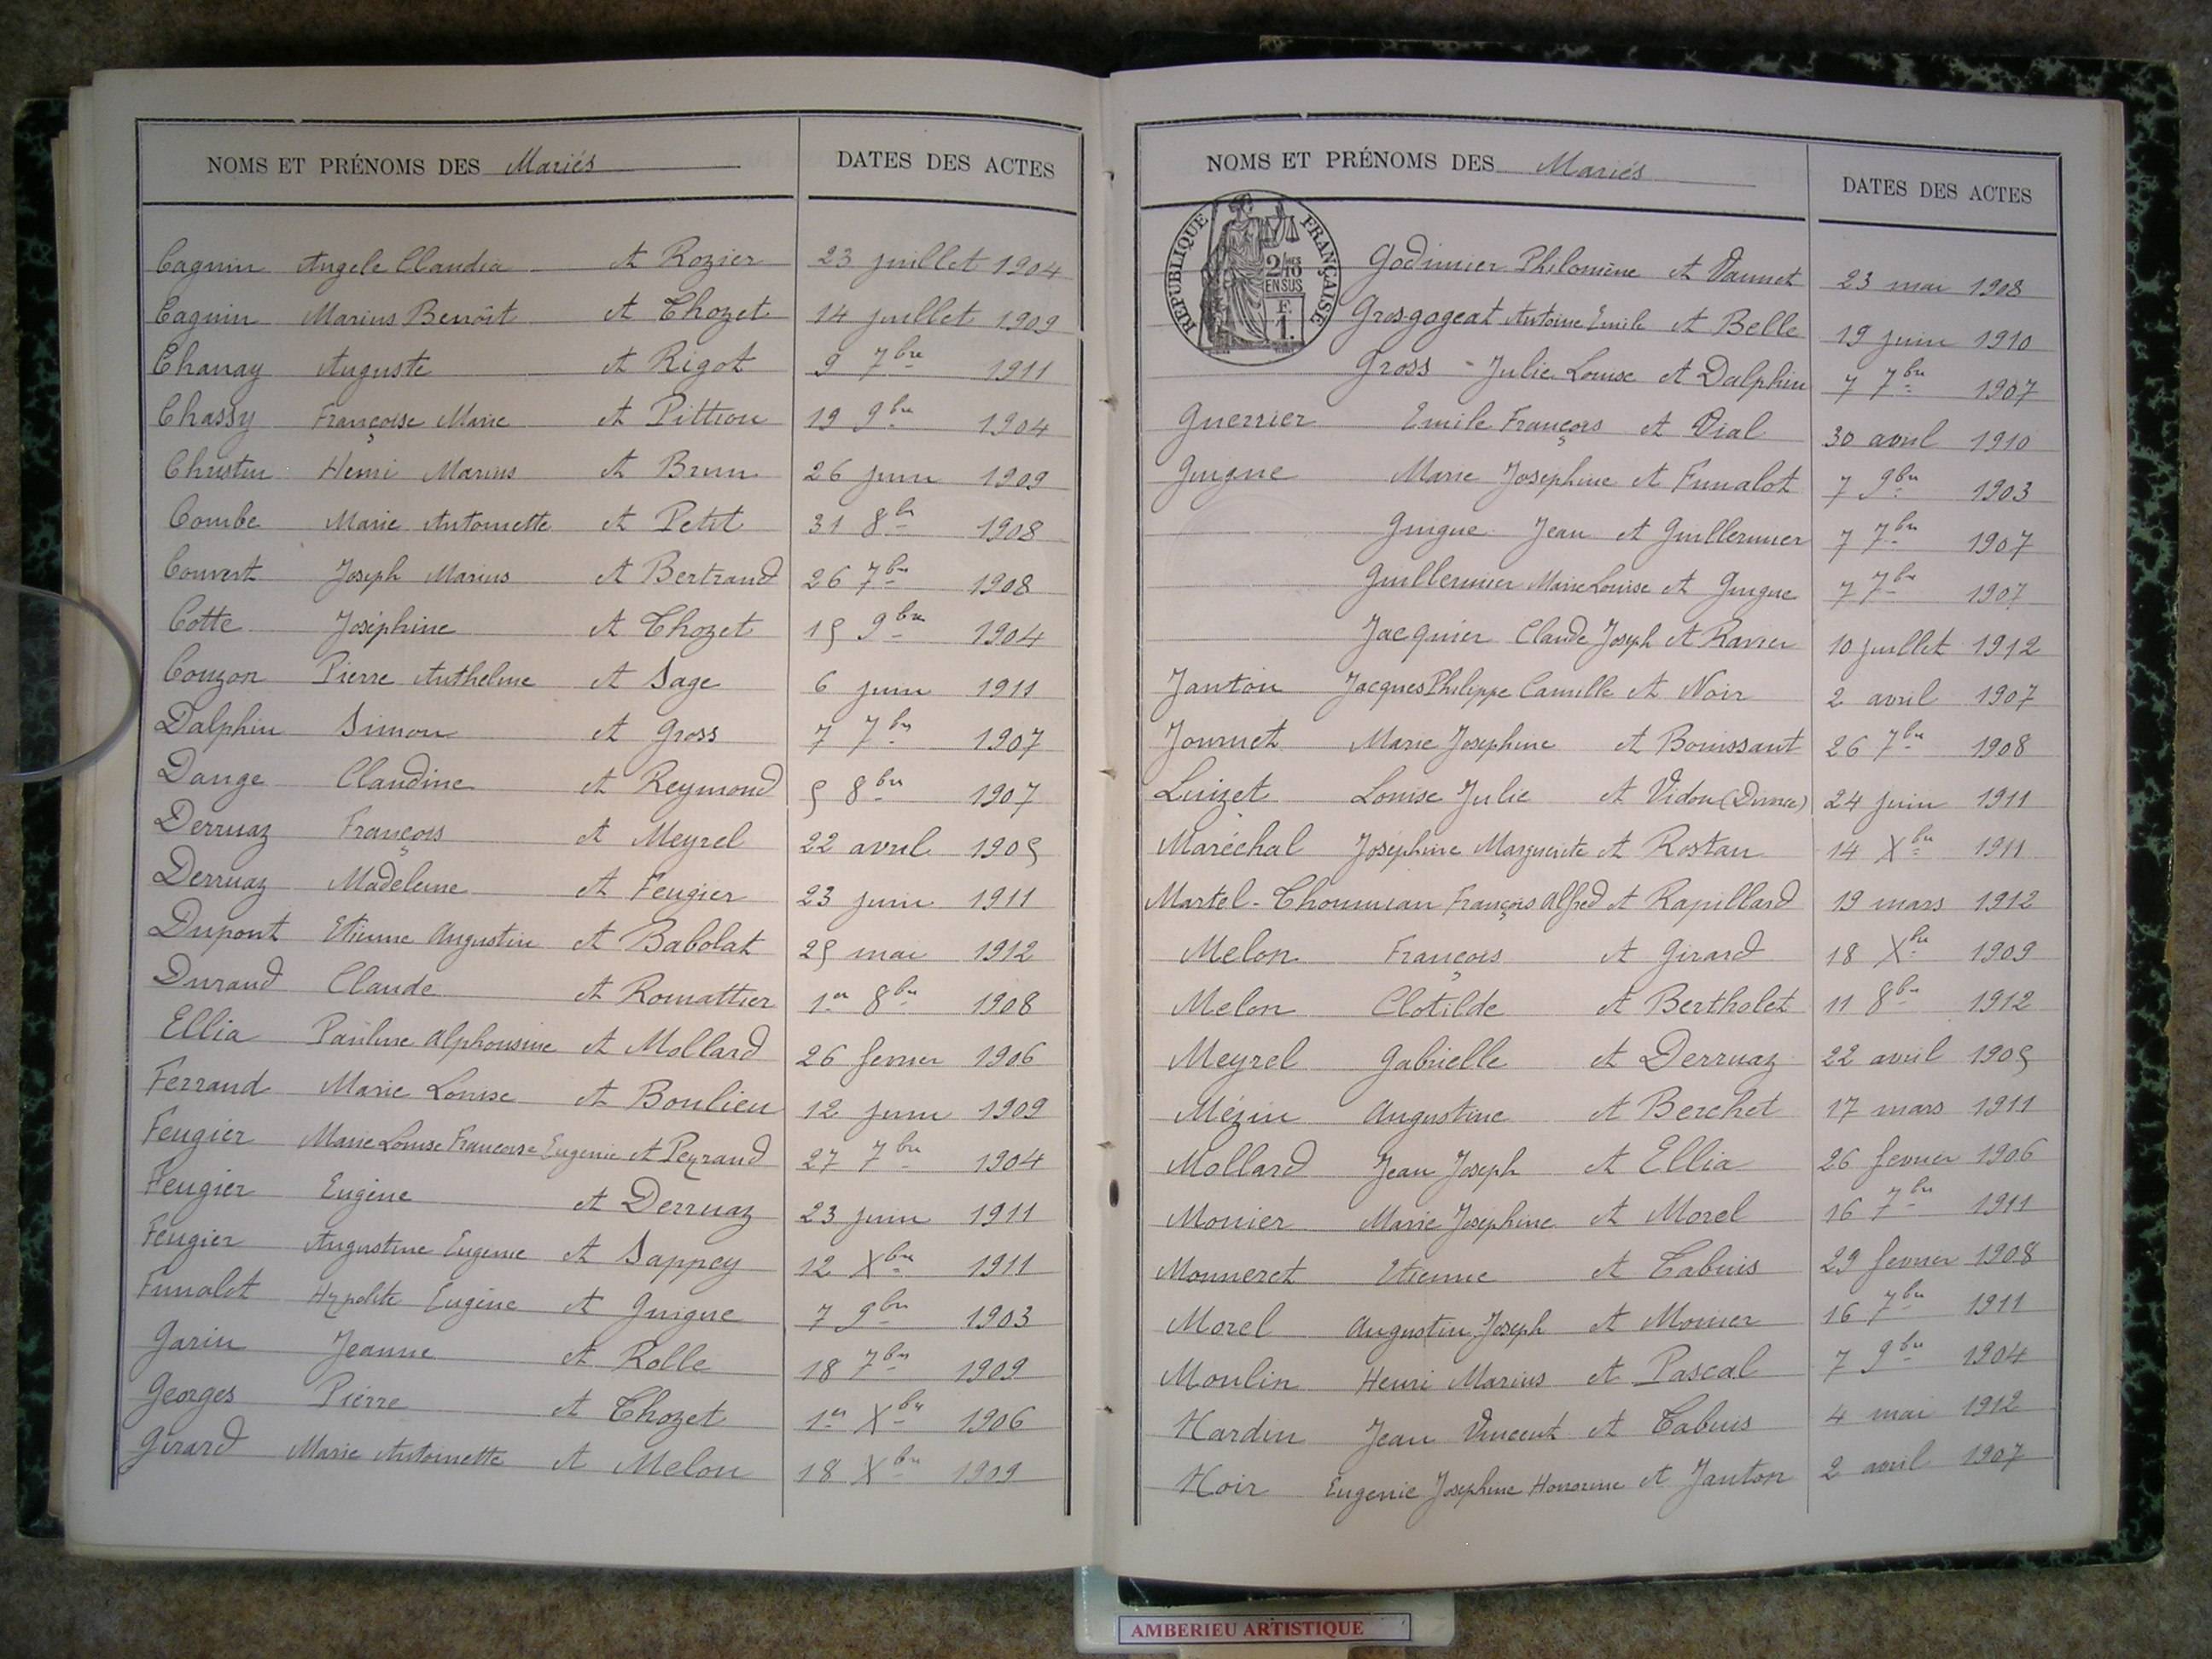 NOMS ET PRÉNOMS DES Mariés DATES DES ACTES
Cagnin Angele Claudia et Rozier 23 juillet 1904
Cagnin Marius Benoît et Chozet 14 juillet 1909
Chanay Auguste et Rigot 9 7bre 1911
Chassy Françoise Marie et Pittion 19 9bre 1904
Henri Marius et Brun 26 juin 1909
Combe Marie Antoinette et Petit 31 8bre 1908
Convert Joseph Marius et Bertrand 26 7bre 1908
Cotte Joséphine et Chozet 15 9bre 1904
Couzon Pierre Anthelme et Sage 6 juin 1911
Dalphin Simon et Gross 7 7bre 1907
Dange Claudine et Reymond 5 8bre 1907
Derruaz François et Meyrel 22 avril 1905
Derruaz Madeleine et Feugier 23 juin 1911
Dupont Etienne Augustin et Babolat 25 mai 1912
Durand Claude et Romattier 1er 8bre 1908
Ellia Pauline Alphonsine et Mollard 26 fevrier 1906
Ferrand Marie Louise et Boulieu 12 juin 1909
Feugier Marie Louise Francoise Eugenie et Peyraud 27 7bre 1904
Feugier Eugène et Derruaz 23 juin 1911
Feugier Augustine Eugenie et Sappey 12 Xbre 1911
Funalot Hypolite Eugène et Guigue 7 9bre 1903
Garin Jeanne et Rolle 18 7bre 1909
Georges Pierre et Chozet 1er Xbre 1906
Girard Marie Antoinette et Melon 18 Xbre 1909
NOMS ET PRÉNOMS DES Mariés DATES DES ACTES
REPUBLIQUE FRANÇAISE
2/10 EN SUS
F. 1.
Godinier Philomène et Vannet 23 mai 1908
Grosgogeat Antoine Emile et Belle 19 juin 1910
Gross - Julie Louise et Dalphin 7 7bre 1907
Guerrier Emile François et Vial 30 avril 1910
Guigue Marie Joséphine et Funalot 7 9bre 1903
Guigue Jean et Guillermier 7 7bre 1907
Guillermier Marie Louise et Guigue 7 7bre 1907
Jacquier Claude Joseph et Ravier 10 juillet 1912
Janton Jacques Philippe Camille et Noir 2 avril 1907
Journet Marie Josephine et Bouissant 26 7bre 1908
Luizet Louise Julie et Vidon (Divorce) 24 juin 1911
Maréchal Joséphine Marguerite et Rostan 14 Xbre 1911
Martel-Thoumian François Alfred et Rapillard 19 mars 1912
Melon François et Girard 18 Xbre 1909
Melon Clotilde et Bertholet 11 8bre 1912
Meyrel Gabrielle et Derruaz 22 avril 1905
Mézin Augustine et Berchet 17 mars 1911
Mollard Jean Joseph et Ellia 26 fevrier 1906
Monier Marie Joséphine et Morel 16 7bre 1911
Monneret Etienne et Cabuis 29 fevrier 1908
Morel Augustin Joseph et Monier 16 7bre 1911
Moulin Henri Marius et Pascal 7 9bre 1904
Nardin Jean Vincent et Cabuis 4 mai 1912
Noir Eugenie Joséphine Honorine et Janton 2 avril 1907
AMBERIEU ARTISTIQUE